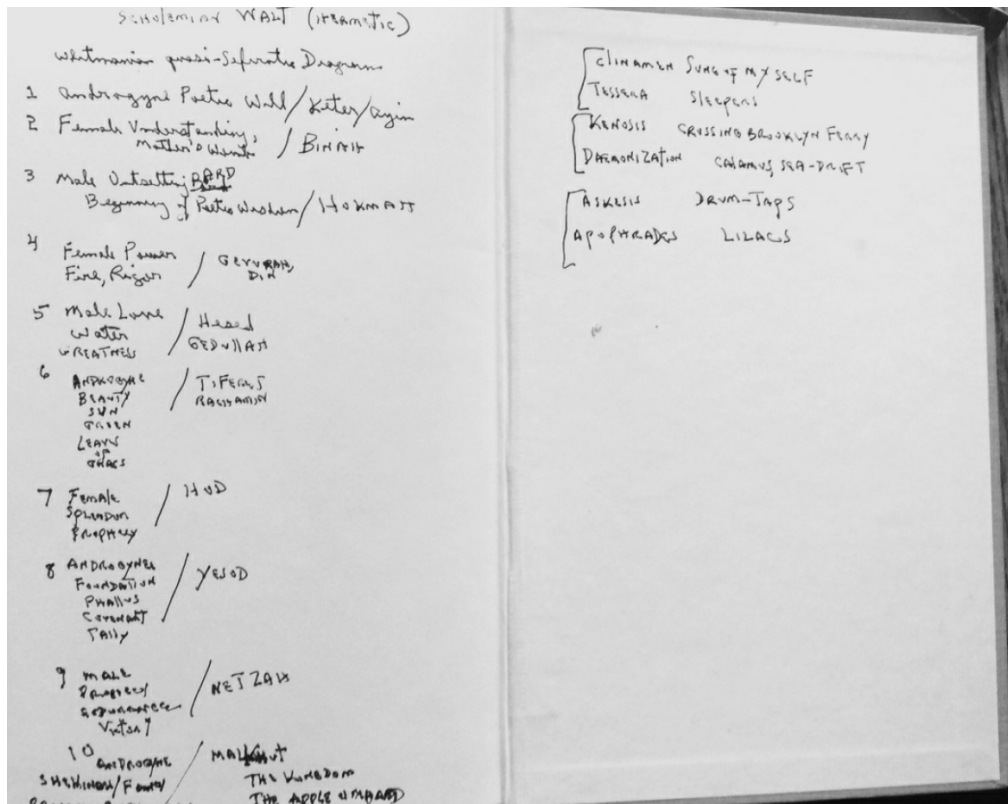 SCHOLEMIAN WALT (HERMETIC)
Whitmanian quasi-Sefirotic Diagram
1 Androgyne Poetic Will / Keter / Ayin
2 Female Understanding,
Matter's Womb / BINAH
3 Male Unsetting BARD
Beginning of Poetic Wisdom / HOKMAH
4 Female Power
Fire, Rigor / GEVURAH,
DIN
5 Male Love
Water
GREATNESS / Hesed
GEDULLAH
6 ANDROGYNE
BEAUTY
SUN
GREEN
LEAVES
OF
GRASS / TIFERET
RACHAMIM
7 FEMALE
SPLENDOR
PROPHECY / HOD
8 ANDROGYNES
FOUNDATION
PHALLUS
COVENANT
TALLY / YESOD
9 MALE
PROPHECY
ENDURANCE
VICTORY / NETZAH
10 ANDROGYNE
SHEKHINAH / Family / MALKHUT
THE KINGDOM
THE APPLE ORCHARD
CLINAMEN SONG OF MYSELF
TESSERA SLEEPERS
KENOSIS CROSSING BROOKLYN FERRY
DAEMONIZATION CALAMUS, SEA-DRIFT
ASKESIS DRUM-TAPS
APOPHRADES LILACS